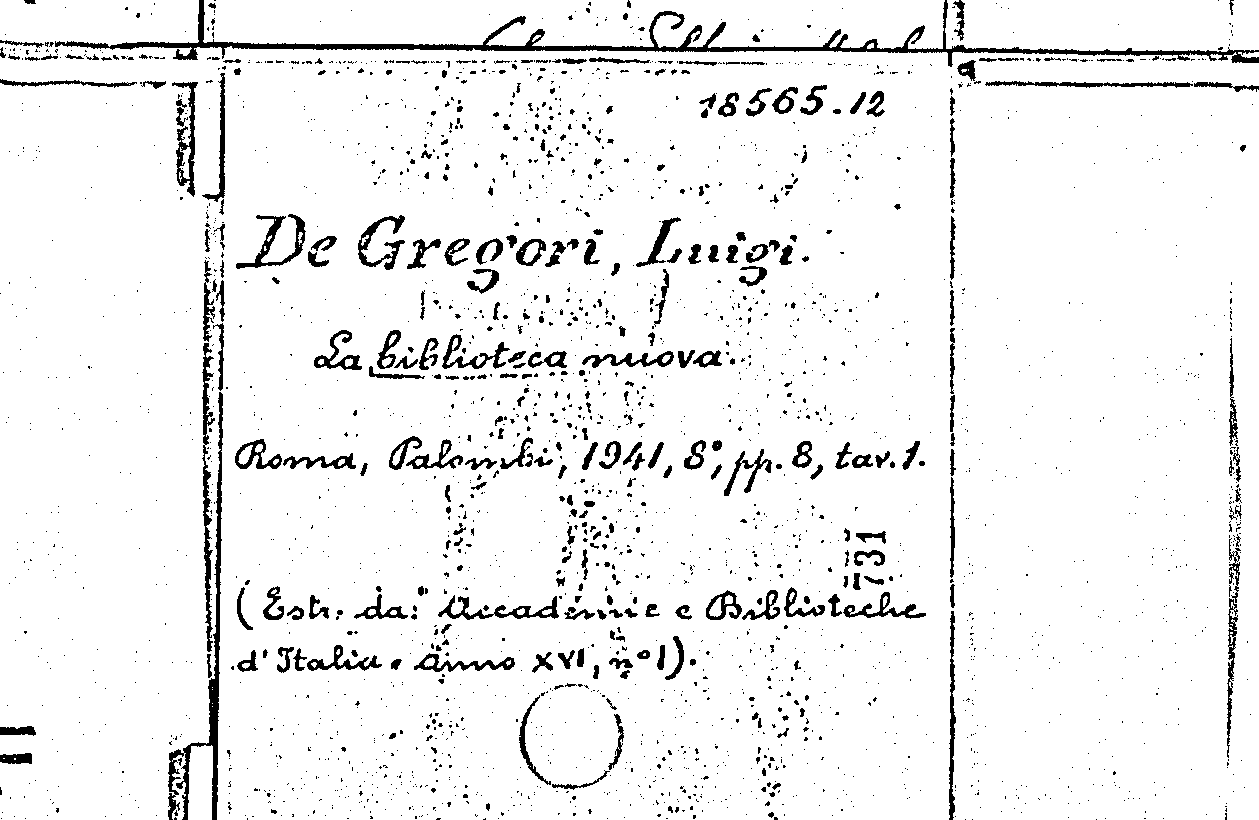 18565.12
De Gregori, Luigi.
La biblioteca nuova.
Roma, Palombi, 1941, 8°, pp. 8, tav. 1.
731
(Estr. da: "Accademie e Biblioteche
d'Italia. Anno XVI, n° 1).